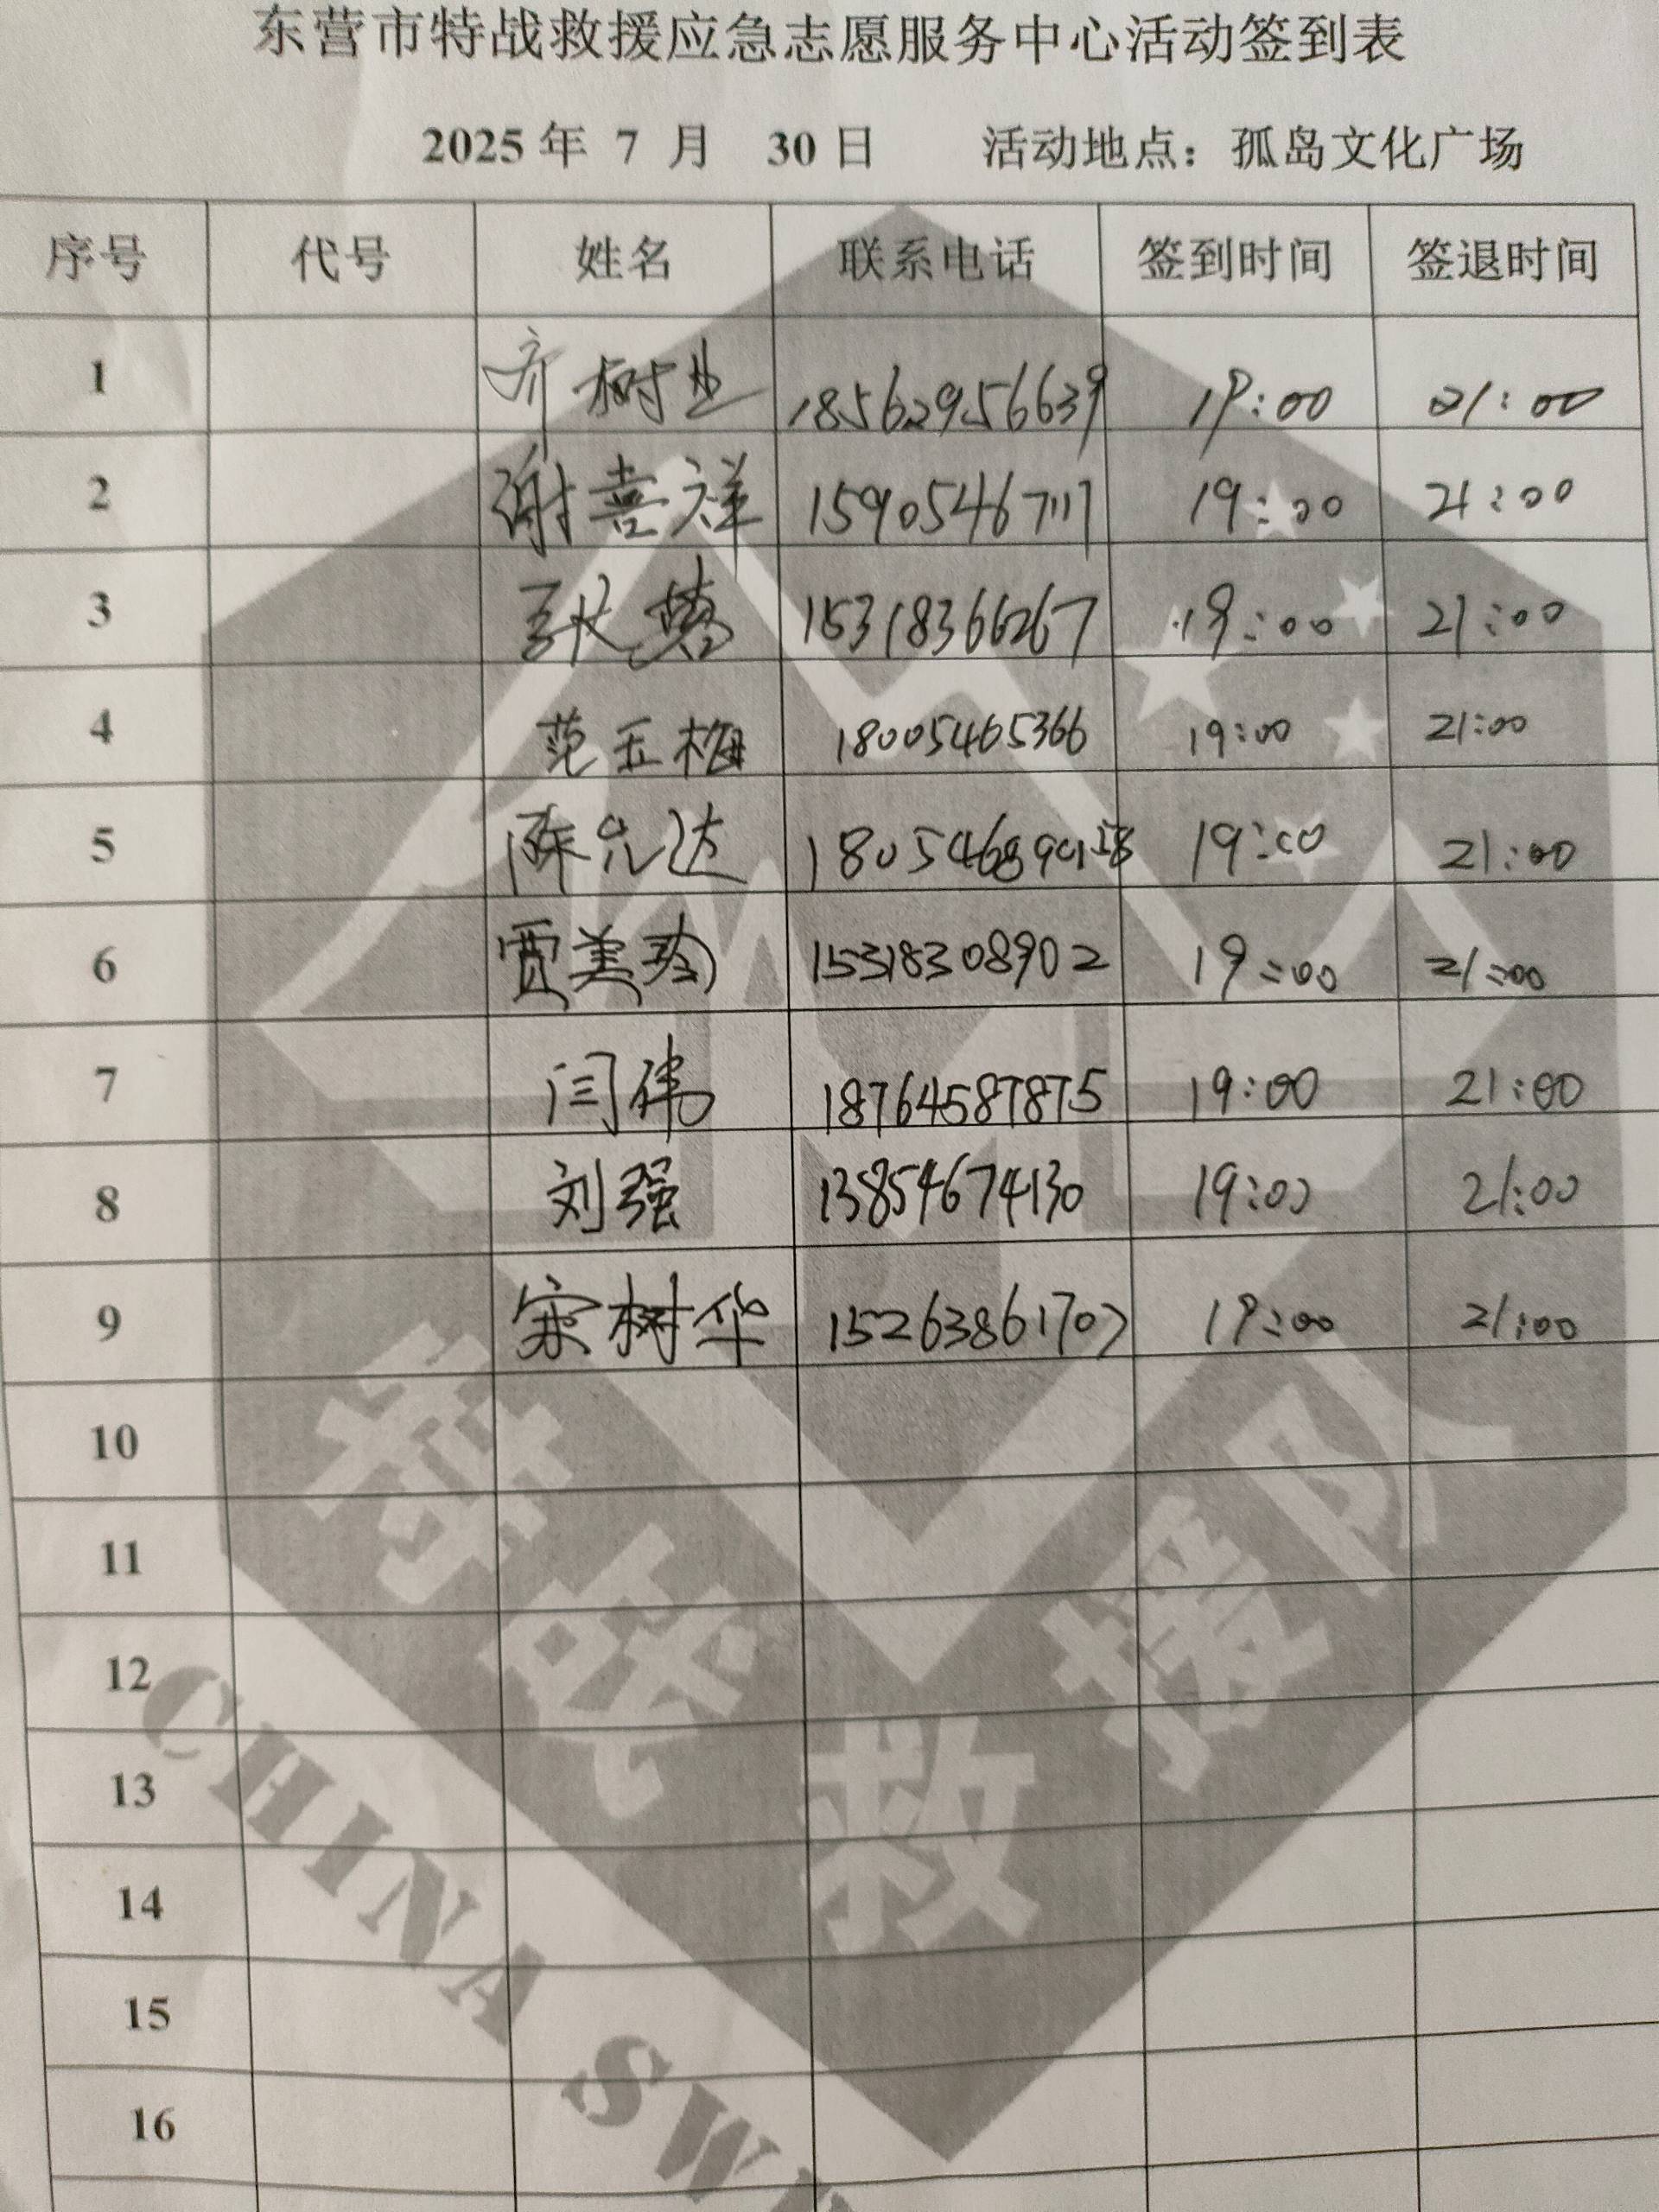 东营市特战救援应急志愿服务中心活动签到表
2025 年 7 月 30 日 活动地点：孤岛文化广场
序号 代号 姓名 联系电话 签到时间 签退时间
1 齐树业 18562956639 19:00 21:00
2 谢喜祥 15905467117 19:00 21:00
3 15318366267 19:00 21:00
4 范玉梅 18005465366 19:00 21:00
5 陈允达 19:00 21:00
6 贾美玲 15318308902 19:00 21:00
7 闫伟 18764587875 19:00 21:00
8 刘强 13854674130 19:00 21:00
9 宋树华 15263861707 19:00 21:00
10
11
12
13
14
15
16
特战救援队
CHINA SW